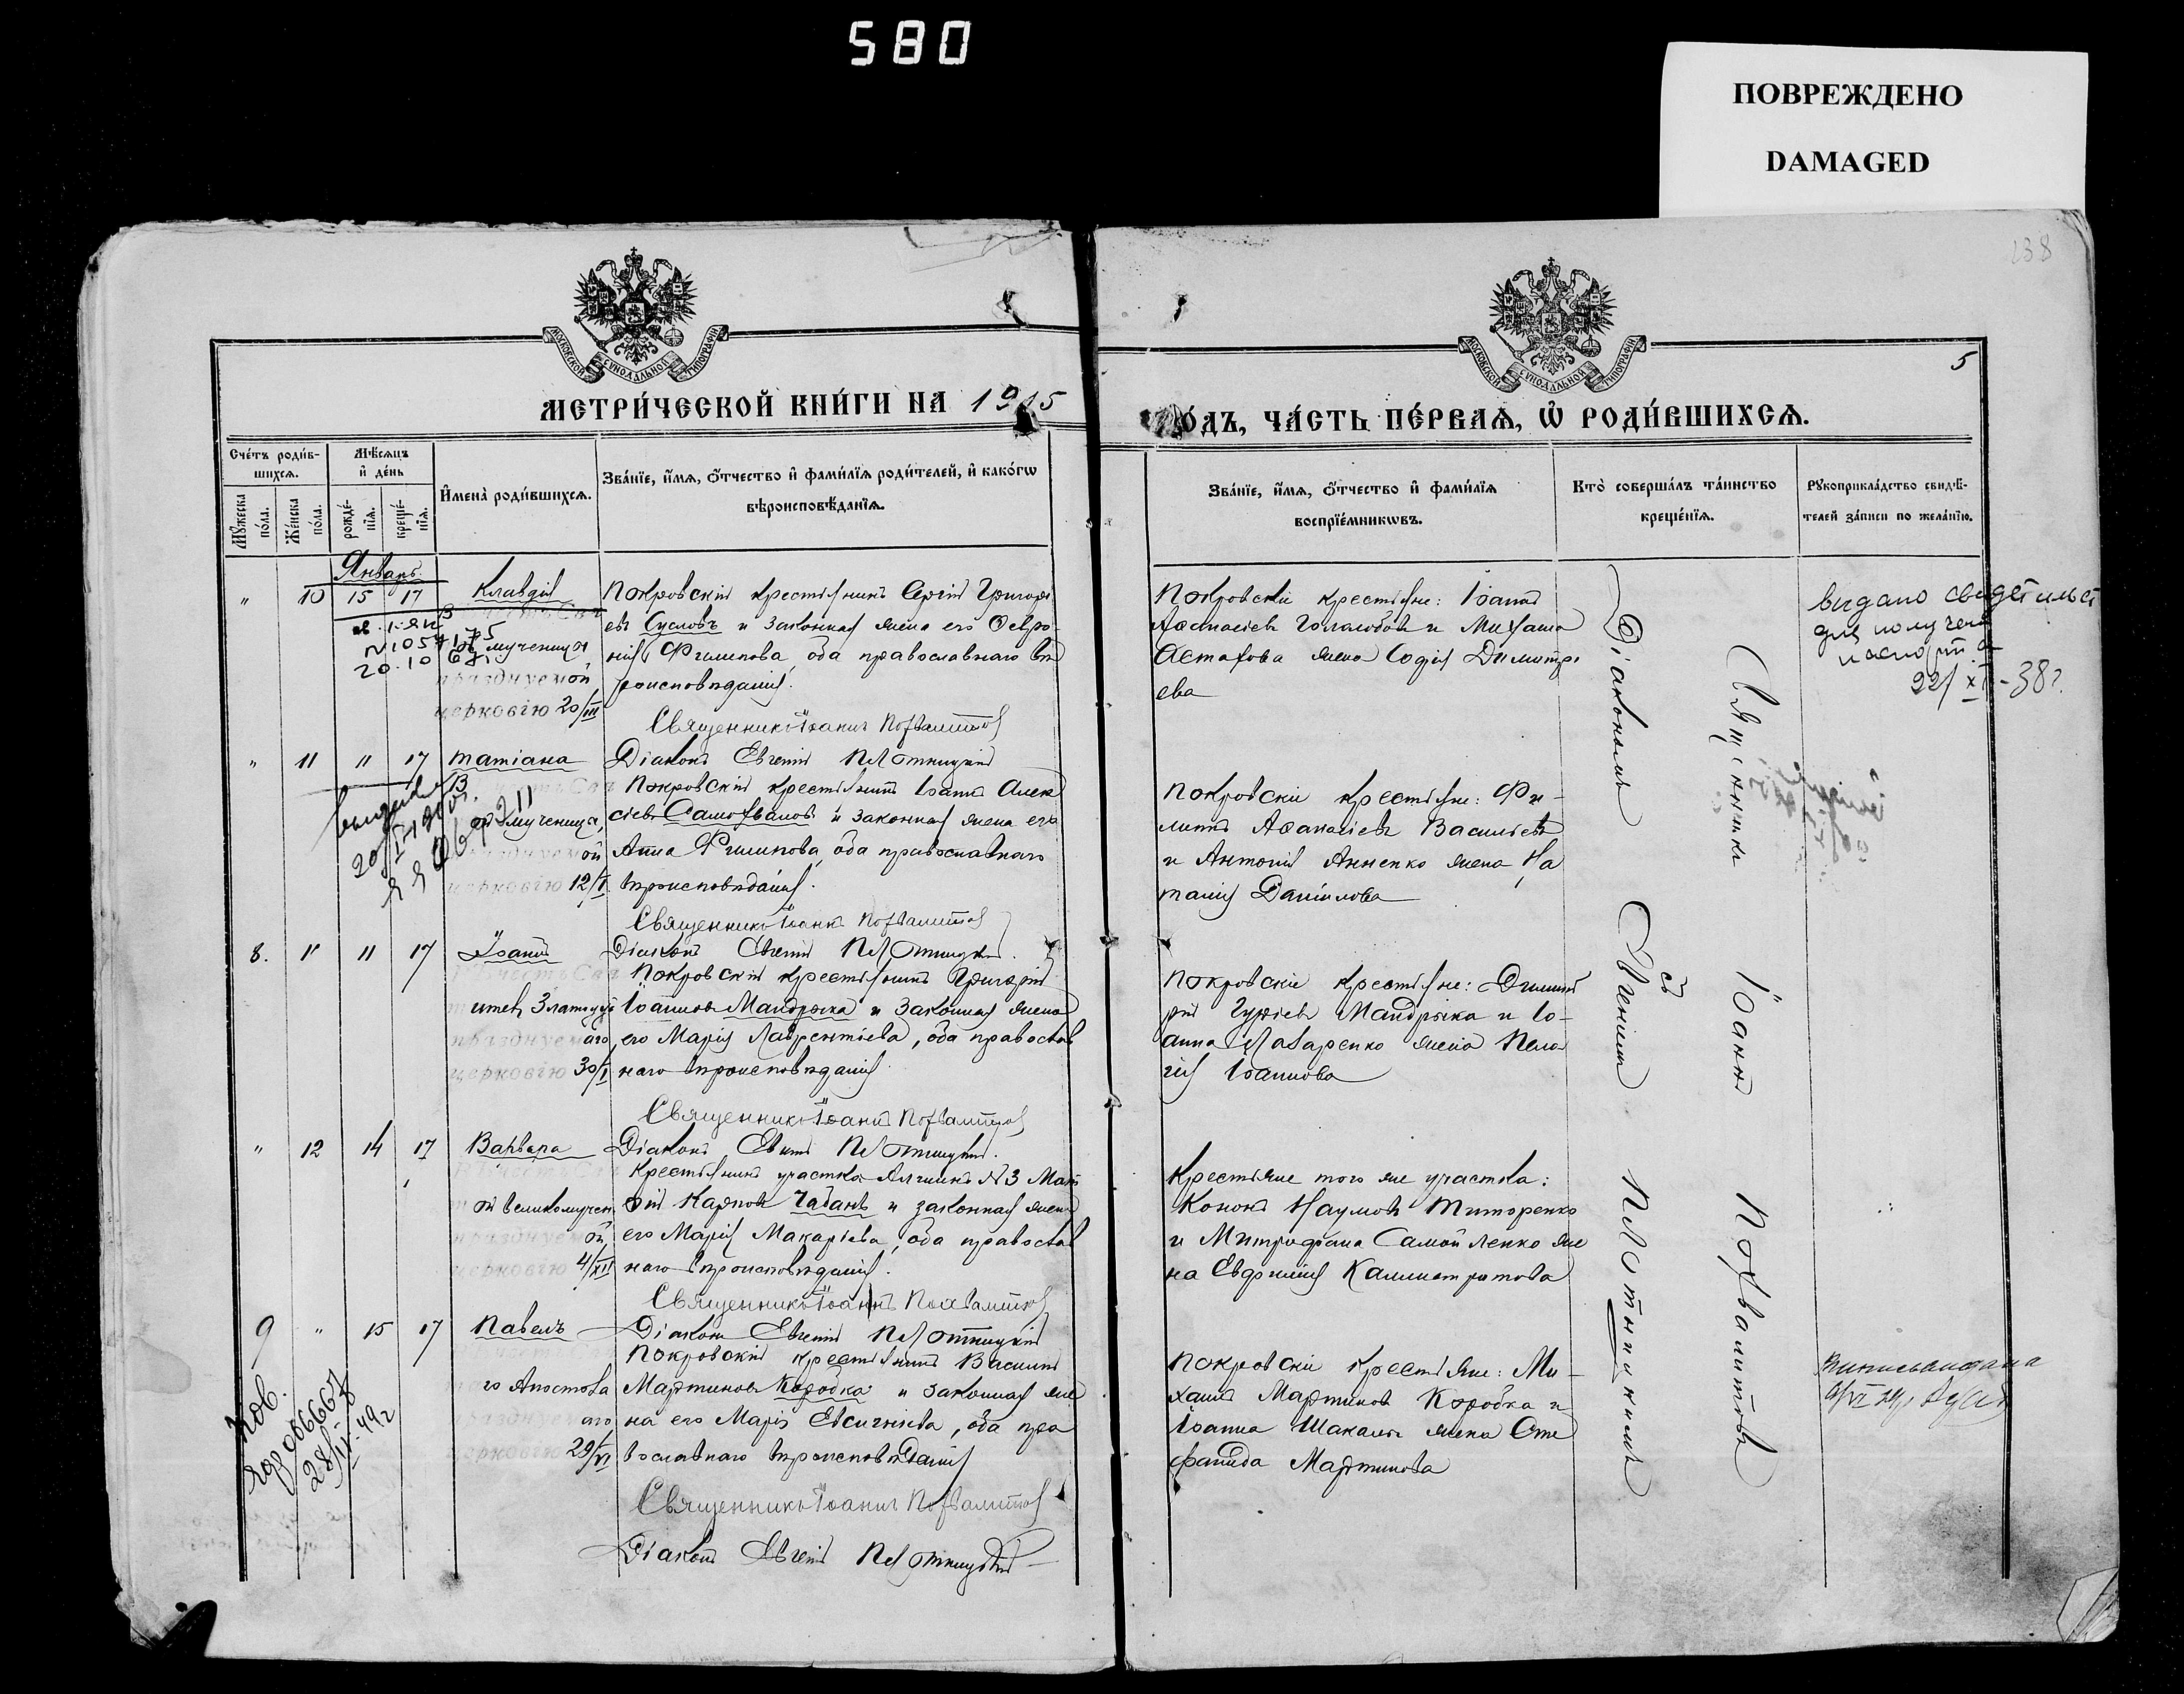 580
ПОВРЕЖДЕНО
DAMAGED
138
5
МОСКОВСКОЙ СѴНОДАЛЬНОЙ ТИПОГРАФІИ
МОСКОВСКОЙ СѴНОДАЛЬНОЙ ТИПОГРАФІИ
МЕТРИ́ЧЕСКОЙ КНИ́ГИ НА 1915
ГО́ДЪ, ЧА́СТЬ ПЕ́РВАѦ, Ѡ҆ РОДИ́ВШИХСѦ.
Сче́тъ роди́в-
шихсѧ.
Мꙋ́жеска
по́ла.
Же́нска
по́ла.
Мѣ́сѧцъ
и҆ де́нь
рожде́-
нїѧ.
креще́-
нїѧ.
И҆мена̀ роди́вшихсѧ.
Зва́нїе, и҆́мѧ, ѻ҆́тчество и҆ фами́лїѧ роди́телей, и҆ како́гѡ
вѣроисповѣ́данїѧ.
Зва́нїе, и҆́мѧ, ѻ҆́тчество и҆ фами́лїѧ
воспрїе́мникѡвъ.
Кто̀ соверша́лъ та́инство
креще́нїѧ.
Рꙋкоприкла́дство свидѣ́-
телей за́писи по жела́нїю.
Январь
" 10 15 17 Клавдія
мученица
празднуемой
церковію 20/III
Покровскій крестьянинъ Сергій Григорі
евъ Сусловъ и законная жена его Февро
нія Филипова, оба православнаго вѣ
роисповѣданія.
Священникъ Іоаннъ Похвалитовъ
Діаконъ Евгеній Плотницкій
Покровскіе крестьяне: Іоаннъ
и Михаила
Астахова жена Софія Димитрі
ева
выдано свидетельст
для получения
паспорта
22/XI-38г.
" 11 11 17 Татіана
мученица,
ой
церковію 12/I
Покровскій крестьянинъ Іоаннъ Алек
сіевъ Самохваловъ и законная жена его
Анна Филипова, оба православнаго
вѣроисповѣданія.
Священникъ Іоаннъ Похвалитовъ
Діаконъ Евгеній Плотницкій.
Покровскіе крестьяне: Фи-
липпъ Афанасіевъ Василіевъ
и Антонія Анненко жена На
талія Даніилова
8. " 11 17 Іоаннъ
Златоуст
аго,
церковію 30/I
Покровскій крестьянинъ Григорій
Іоанновъ Мандрыка и законная жена
его Марія Лаврентіева, оба православ
наго вѣроисповѣданія
Священникъ Іоаннъ Похвалитовъ
Діаконъ Евгеній Плотницкій.
Покровскіе крестьяне: Димит
рій Гуріевъ Мандрыка и Іо-
анна Лазаренко жена Пела
гія Іоаннова
" 12 14 17 Варвара
великомучен
ой,
церковію 4/XII
Крестьянинъ участка Алгинъ №3 Мат
ѳій Карповъ Чабанъ и законная жена
его Марія Макаріева, оба православ
наго вѣроисповѣданія.
Священникъ Іоаннъ Похвалитовъ
Діаконъ Евгеній Плотницкій
Крестьяне того же участка:
Кононъ Наумовъ Титоренко
и Митрофана Самойленко же
на Евфимія Каллистратова
9 " 15 17 Павелъ
го Апостола
аго,
церковію 29/VI
Покровскій крестьянинъ Василій
Мартиновъ Коробка и законная же
на его Марія Евсигніева, оба пра
вославнаго вѣроисповѣданія
Священникъ Іоаннъ Похвалитовъ
Діаконъ Евгеній Плотницкій
Покровскіе крестьяне: Ми-
хаилъ Мартиновъ Коробка и
Іоанна Шакалы жена Сте
фанида Мартинова
Священникъ Іоаннъ Похвалитовъ
съ
Діакономъ Евгеніемъ Плотницкимъ